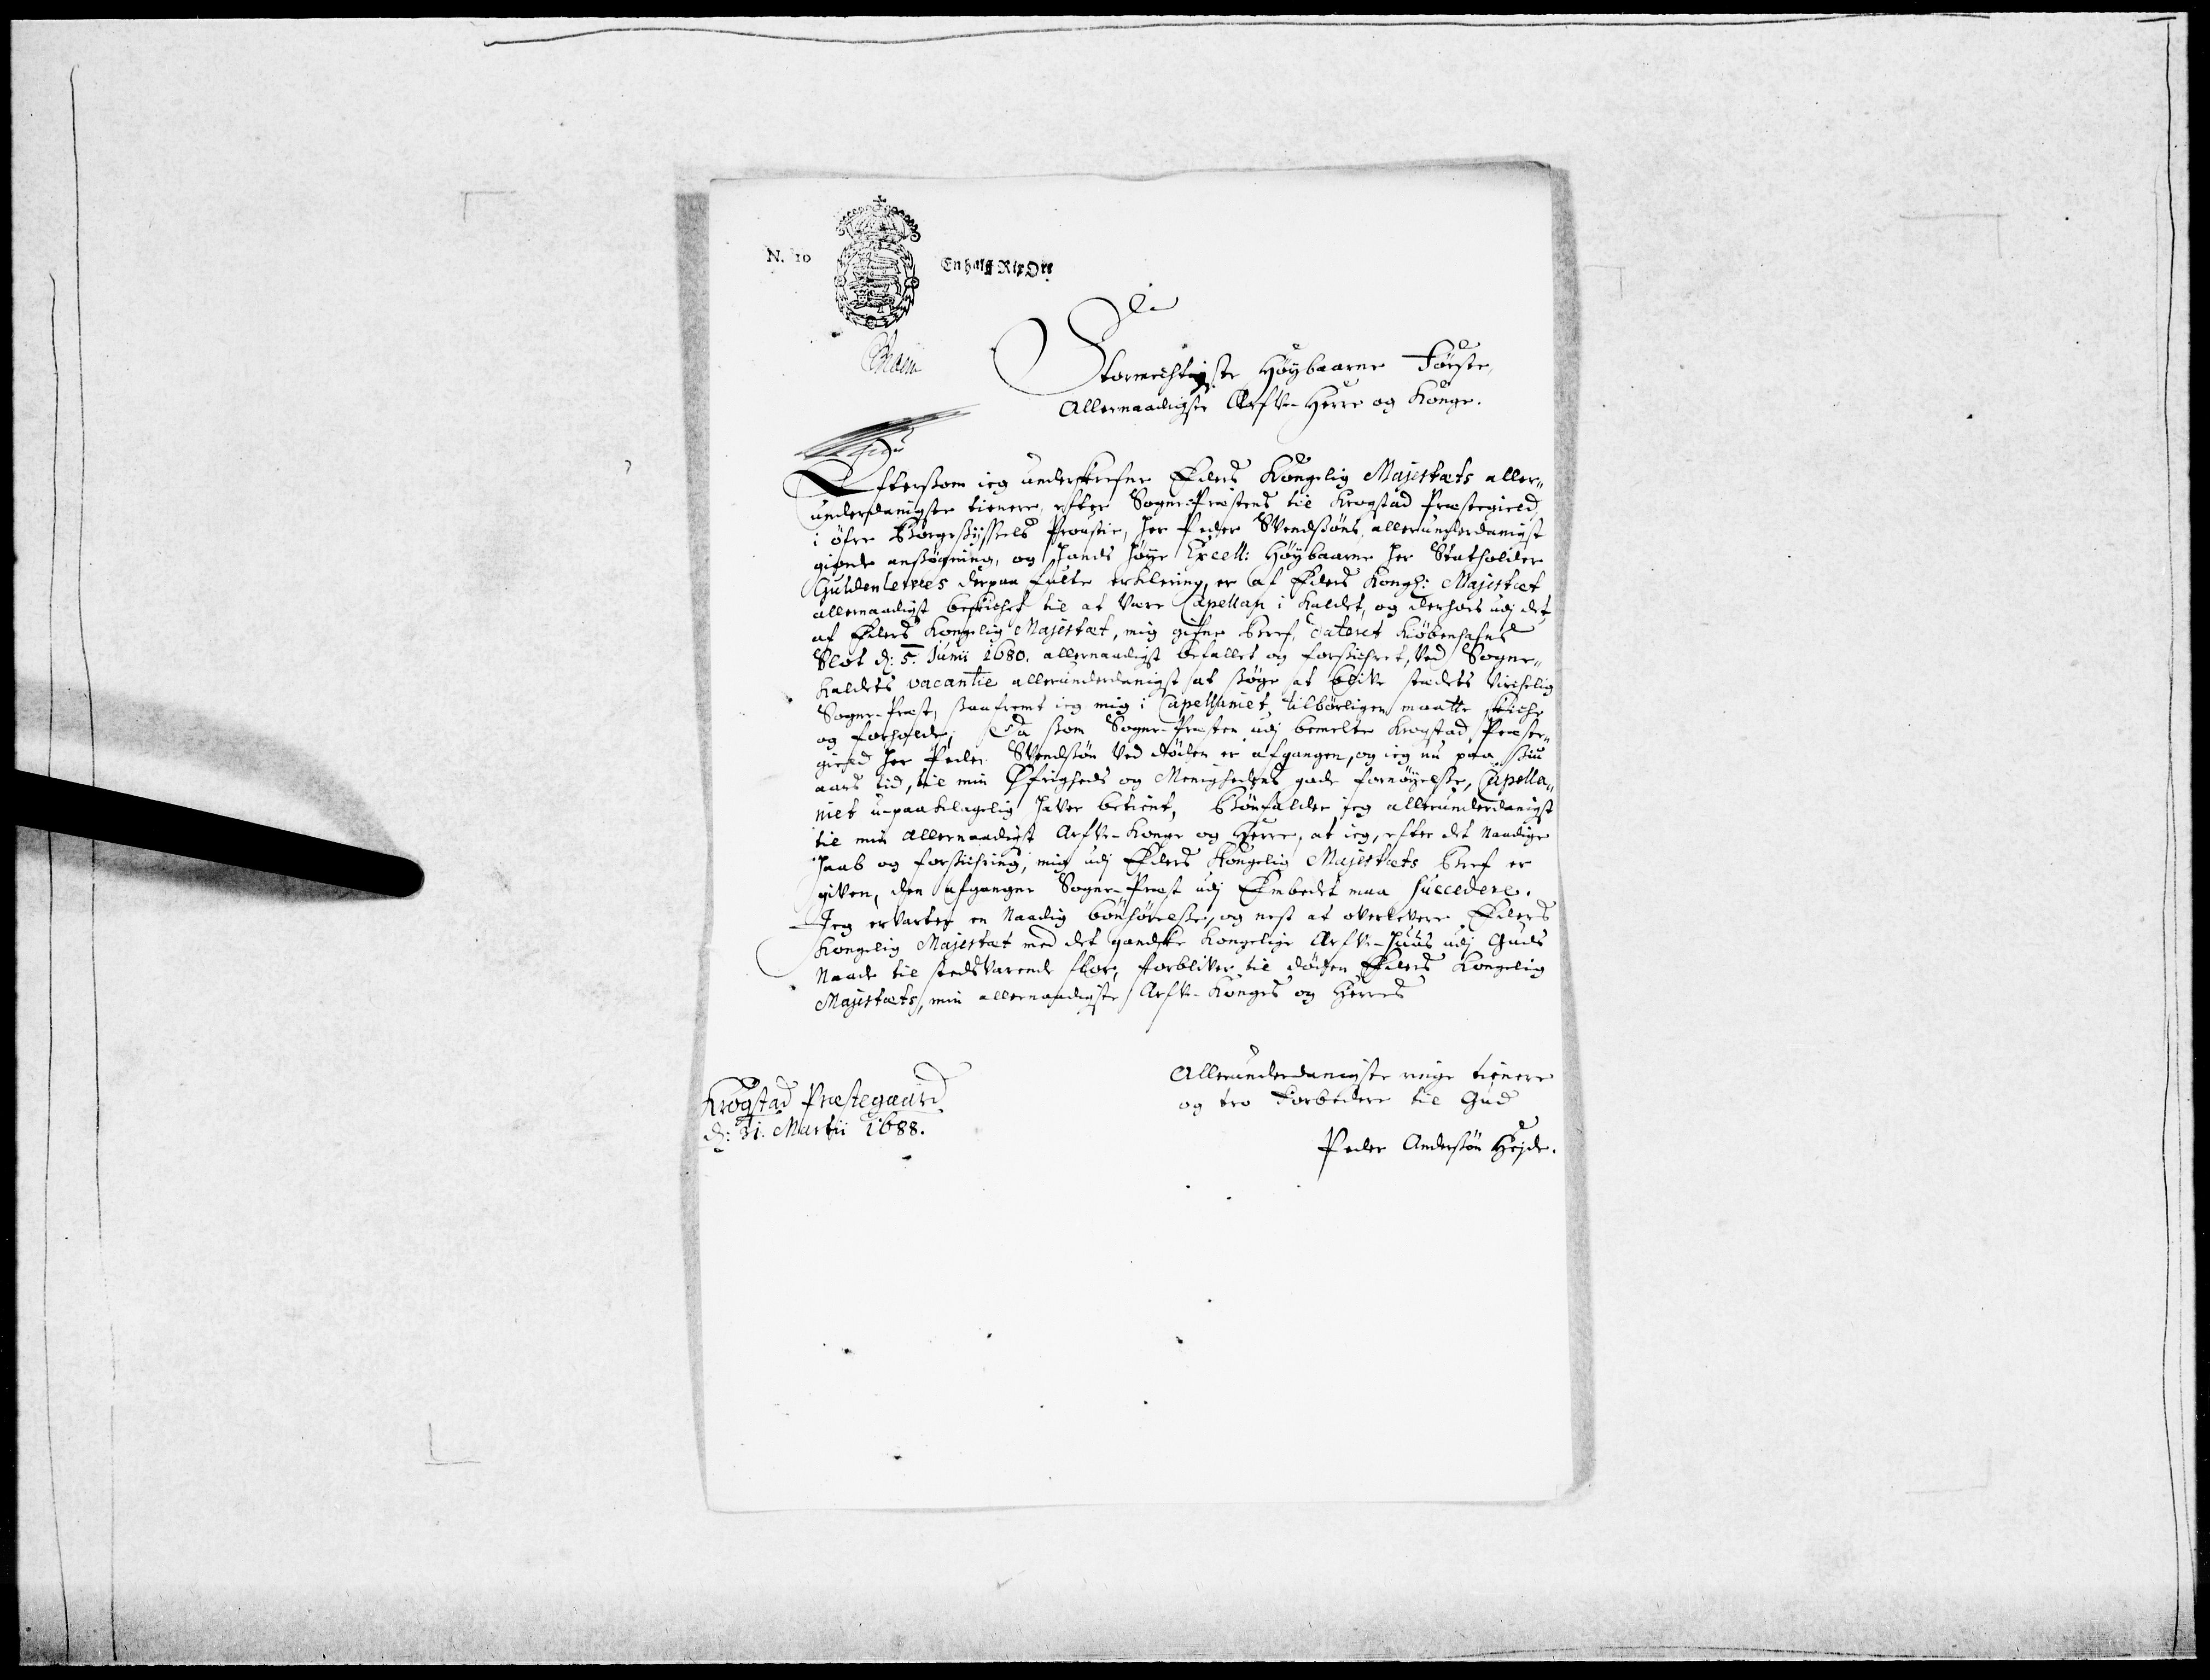 N. 10 En halff Rix Ort
Stormechtigste Høybaarne Første,
Allernaadigste Arfve-Herre og Konge.
Eftersom ieg underskrefne Eders Kongelig Majestæts aller„
underdanigste tienere, efter Sogne-Præstens til Krogstad Præstegield,
i øfre Borgesyssels Proustie, Her Peder Svendsøns allerunderdanigst
giorde ansøgning, og Hands Høye Excell: Høybaarne Her Statholder
Guldenlewes derpaa fulte erklering, er af Eders Kongl: Majestæt
allernaadigst beskichet til at være Capellan i Kaldet, og derhos udj det
af Eders Kongelig Majestæt, mig gifne Bref, dateret Kiøbenhafns
Slot d: 5. Junii 1680. allernaadigst befallet og forsichret, ved Sogne„
Kaldets vacantie allerunderdanigst at søge at blive stedets virchelig
Sogne-Præst, saafremt ieg mig i Capellaniet tilbørligen maatte skiche
og forholde; Da som Sogne-Præsten udj bemelte Krogstad Præste„
gield Her Peder Svendsøn ved døden er afgangen, og ieg nu paa siu
aars tid, til min Øfrigheds og Menighedens gode fornøyelse, Capella„
niet u-paaklagelig haver betient, Bønfalder ieg allerunderdanigst
til min Allernaadigst Arfve-Konge og Herre, at ieg, efter det Naadige
Haab og forsichring, mig udj Eders Kongelig Majestæts Bref er
given, den afgangne Sogne-Præst udj Embedet maa succedere.
Jeg ervarter en Naadig bønhørelse, og nest at overlevere Eders
Kongelig Majestæt med det gandske Kongelige Arfve-Huus udj Guds
Naade til stedsvarende flor, forbliver til døden Eders Kongelig
Majestæts, min allernaadigste Arfve-Konges og Herres
Allerunderdanigste ringe tienere
og tro Forbedere til Gud
Peder Andersøn Hejde.
Krogstad Præstegaard
d: 31. Martii 1688.